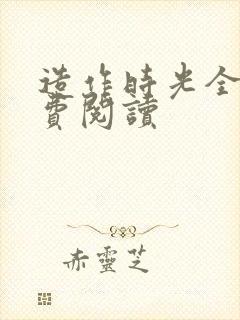 造作時光全
費閱讀
赤靈芝